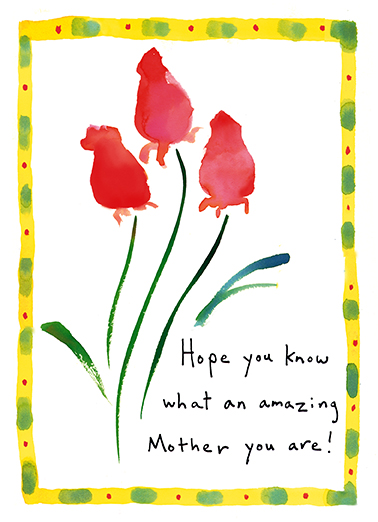 Hope you know
what an amazing
Mother you are!